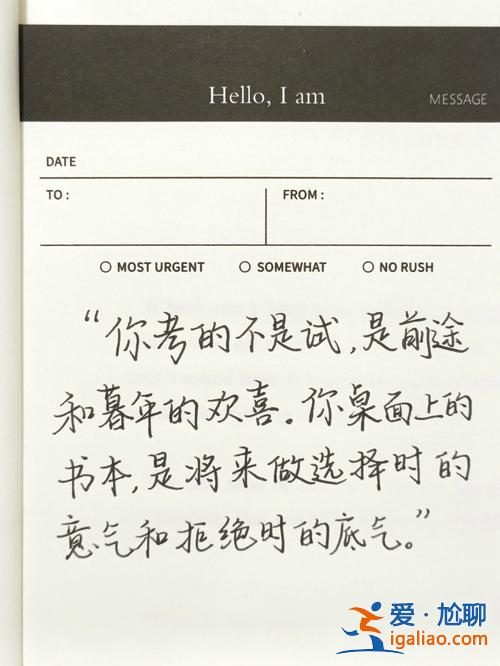 Hello, I am
MESSAGE
DATE
TO :
FROM :
MOST URGENT
SOMEWHAT
NO RUSH
“你考的不是试,是前途
和暮年的欢喜。你桌面上的
书本,是将来做选择时的
意气和拒绝时的底气。”
爱·尬聊
igaliao.com